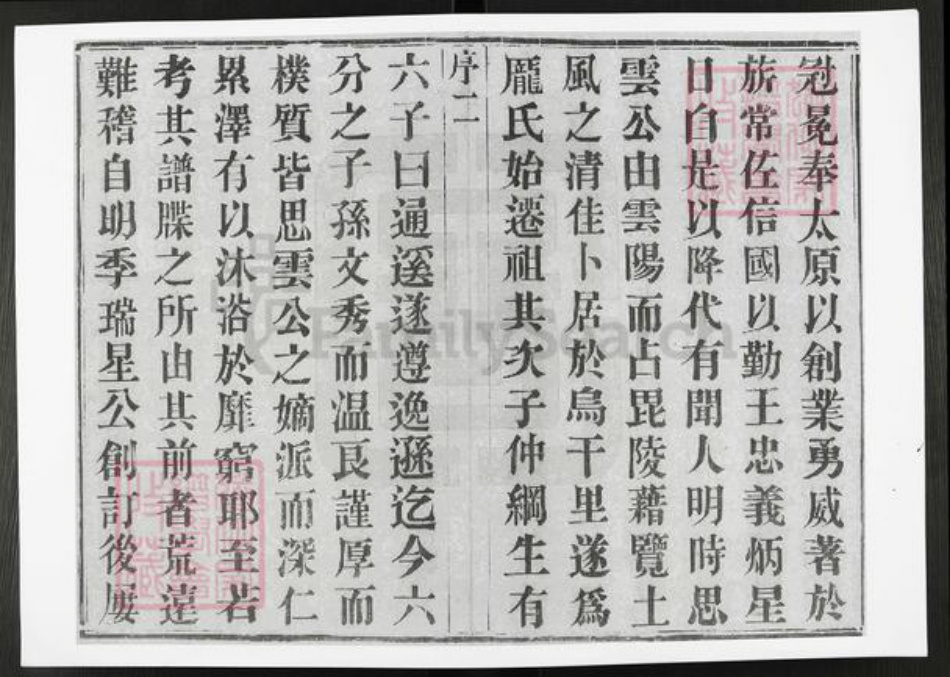 冠冕奉太原以創業勇威著於
旂常佐信國以勤王忠義炳星
日自是以降代有聞人明時思
雲公由雲陽而占毘陵藉覽土
風之清佳卜居於烏干里遂為
龐氏始遷祖其次子仲綱生有
序二
六子曰通溪遂遵逸遜迄今六
分之子孫文秀而温良謹厚而
樸質皆思雲公之嫡派而深仁
累澤有以沐浴於靡窮耶至若
考其譜牒之所由其前者荒遠
難稽自明季瑞星公創訂後屢
FamilySearch